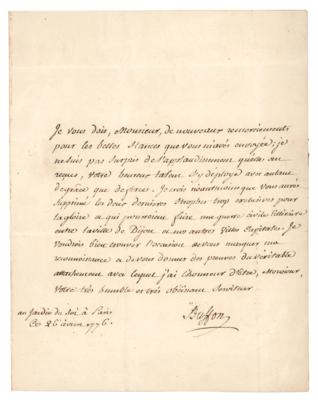 Je vous dois, Monsieur, de nouveaux remerciements
pour les belles Stances que vous m'avés envoyées; je
ne suis pas Surpris de l'applaudissement qu'elles ont
reçue, votre heureux talent s'y deployé avec autant
de grace que de force. Je crois néantmoins que vous aurés
Supprimé les deux dernieres Strophes trop exclusives pour
la gloire et qui pourroient faire une guerre civile littéraire
entre la ville de Dijon et nos autres Villes Capitales. Je
voudrois bien trouver l'occasion de vous marquer ma
reconnoissance et de vous donner des preuves du véritable
attachement avec lequel j'ai l'honneur d'être, Monsieur,
Votre très humble et très obéissant Serviteur
Buffon
au Jardin du Roi à Paris
Ce 26 avril 1776.